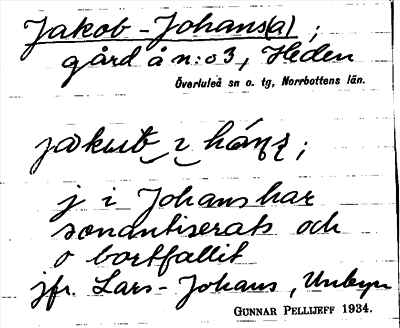 Jakob-Johans(a);
gård å n:o 3, Heden
Överluleå sn o. tg, Norrbottens län.
j i Johans har
sonantiserats och
o bortfallit
jfr. Lars-Johans, Unbyn
GUNNAR PELLIJEFF 1934.